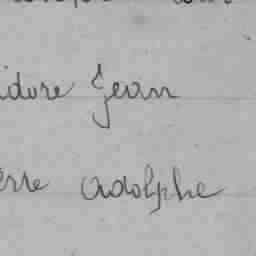 idore Jean
erre Adolphe